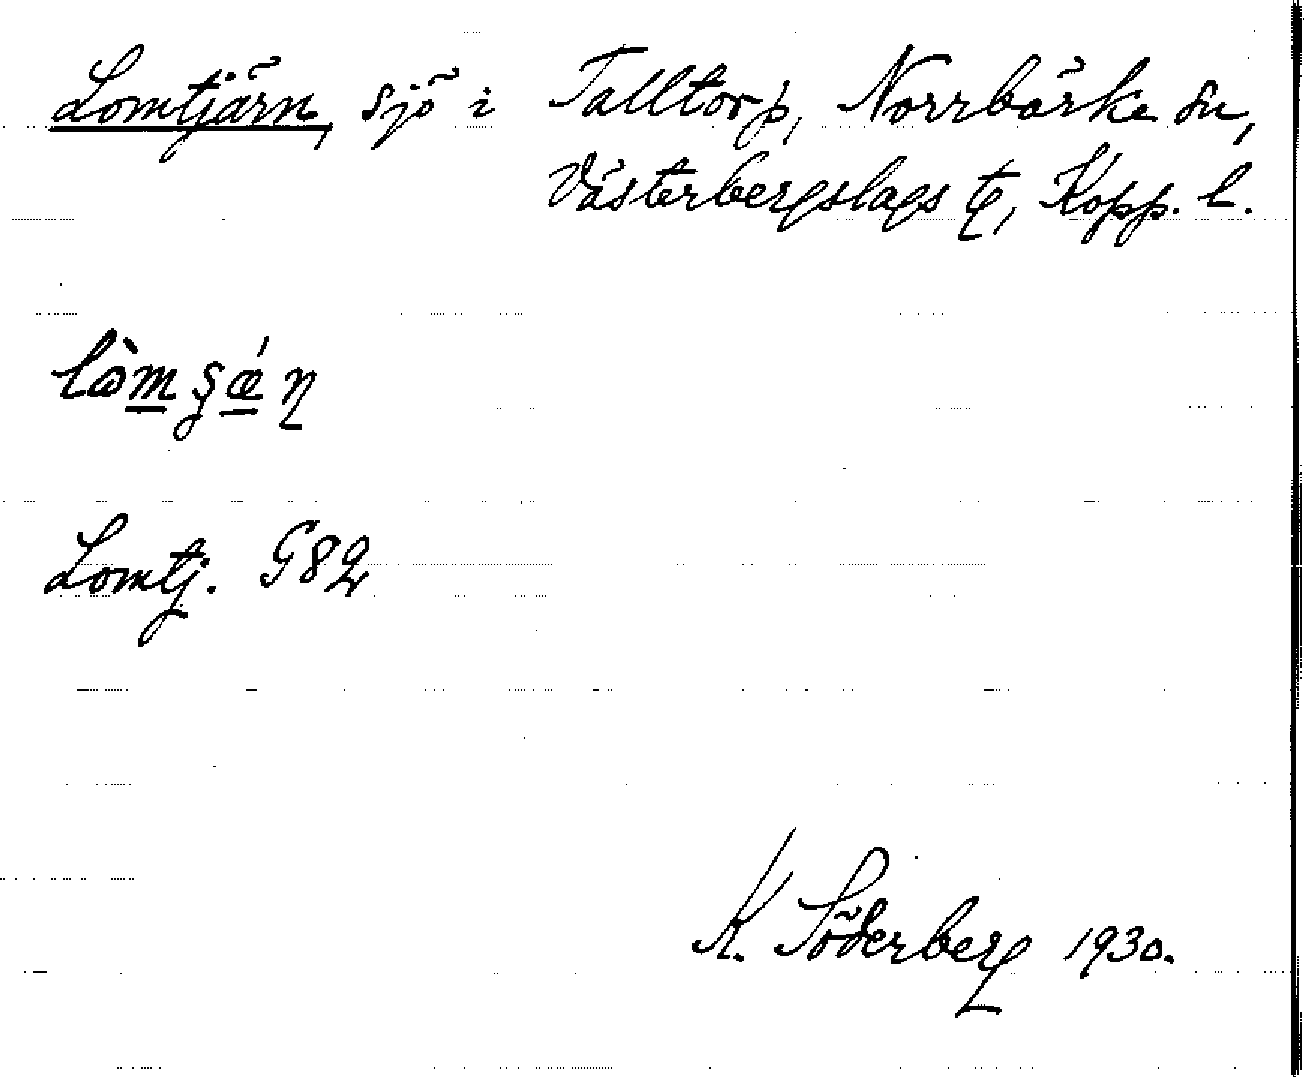 Lomtjärn, sjö i Talltorp, Norrbärke sn,
Västerbergslags tg, Kopp. l.
Lomtj. G82
K. Söderberg 1930.